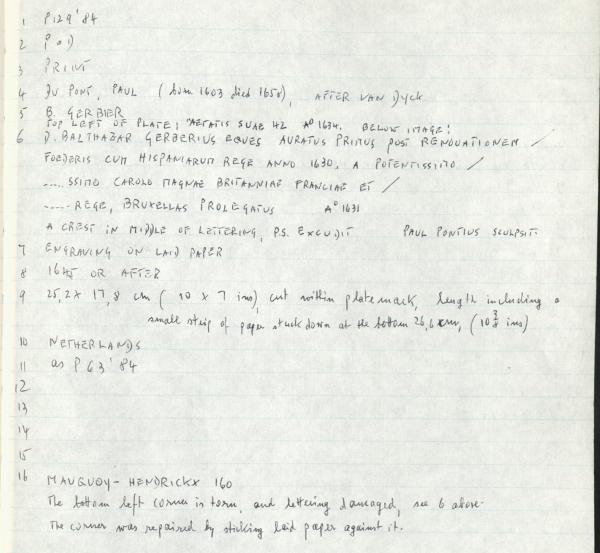 1 P129'84
2 P01)
3 PRINT
4 DU PONT, PAUL (born 1603 died 1658), AFTER VAN DYCK
5 B. GERBIER
TOP LEFT OF PLATE; AETATIS SUAE 42 A° 1634. BELOW IMAGE:
6 D. BALTHAZAR GERBERIUS EQUES AURATUS PRIMUS POST RENOUATIONEM /
FOEDERIS CUM HISPANIARUM REGE ANNO 1630, A POTENTISSIMO /
.....SSIMO CAROLO MAGNAE BRITANNIAE FRANCIAE ET /
.....REGE, BRUXELLAS PROLEGATUS A° 1631
A CREST IN MIDDLE OF LETTERING, P.S. EXCUDIT PAUL PONTIUS SCULPSIT.
7 ENGRAVING ON LAID PAPER
8 1645 OR AFTER
9 25,2 x 17,8 cm ( 10 x 7 ins), cut within platemark, length including a
small strip of paper stuck down at the bottom 26,6 cm, (10 3/8 ins)
10 NETHERLANDS
11 as P 63'84
12
13
14
15
16 MAUQUOY-HENDRICKX 160
The bottom left corner is torn, and lettering damaged, see 6 above.
The corner was repaired by sticking laid paper against it.